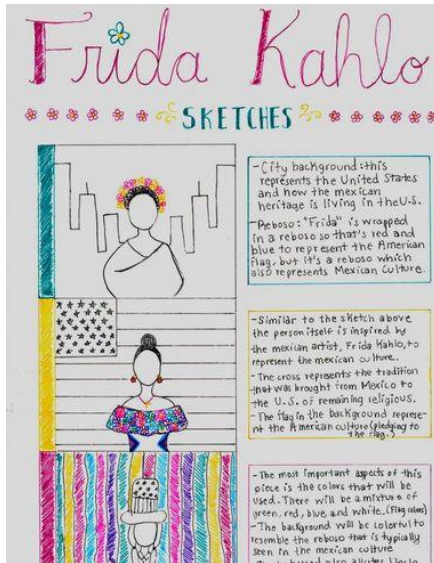 Frida Kahlo
SKETCHES
-City background: this
represents the United States
and how the mexican
heritage is living in the U.S.
-Reboso: "Frida" is wrapped
in a reboso so that's red and
blue to represent the American
flag, but it's a reboso which
also represents Mexican Culture.
-Similar to the sketch above
the person itself is inspired by
the mexican artist, Frida Kahlo, to
represent the mexican culture.
-The cross represents the tradition
that was brought from Mexico to
the U.S. of remaining religious.
-The flag in the background represe-
nt the American culture (pledging to
the flag.)
-The most important aspects of this
piece is the colors that will be
used. There will be a mixture of
green, red, blue, and white. (Flag colors)
-The background will be colorful to
resemble the reboso that is typically
seen in the mexican culture